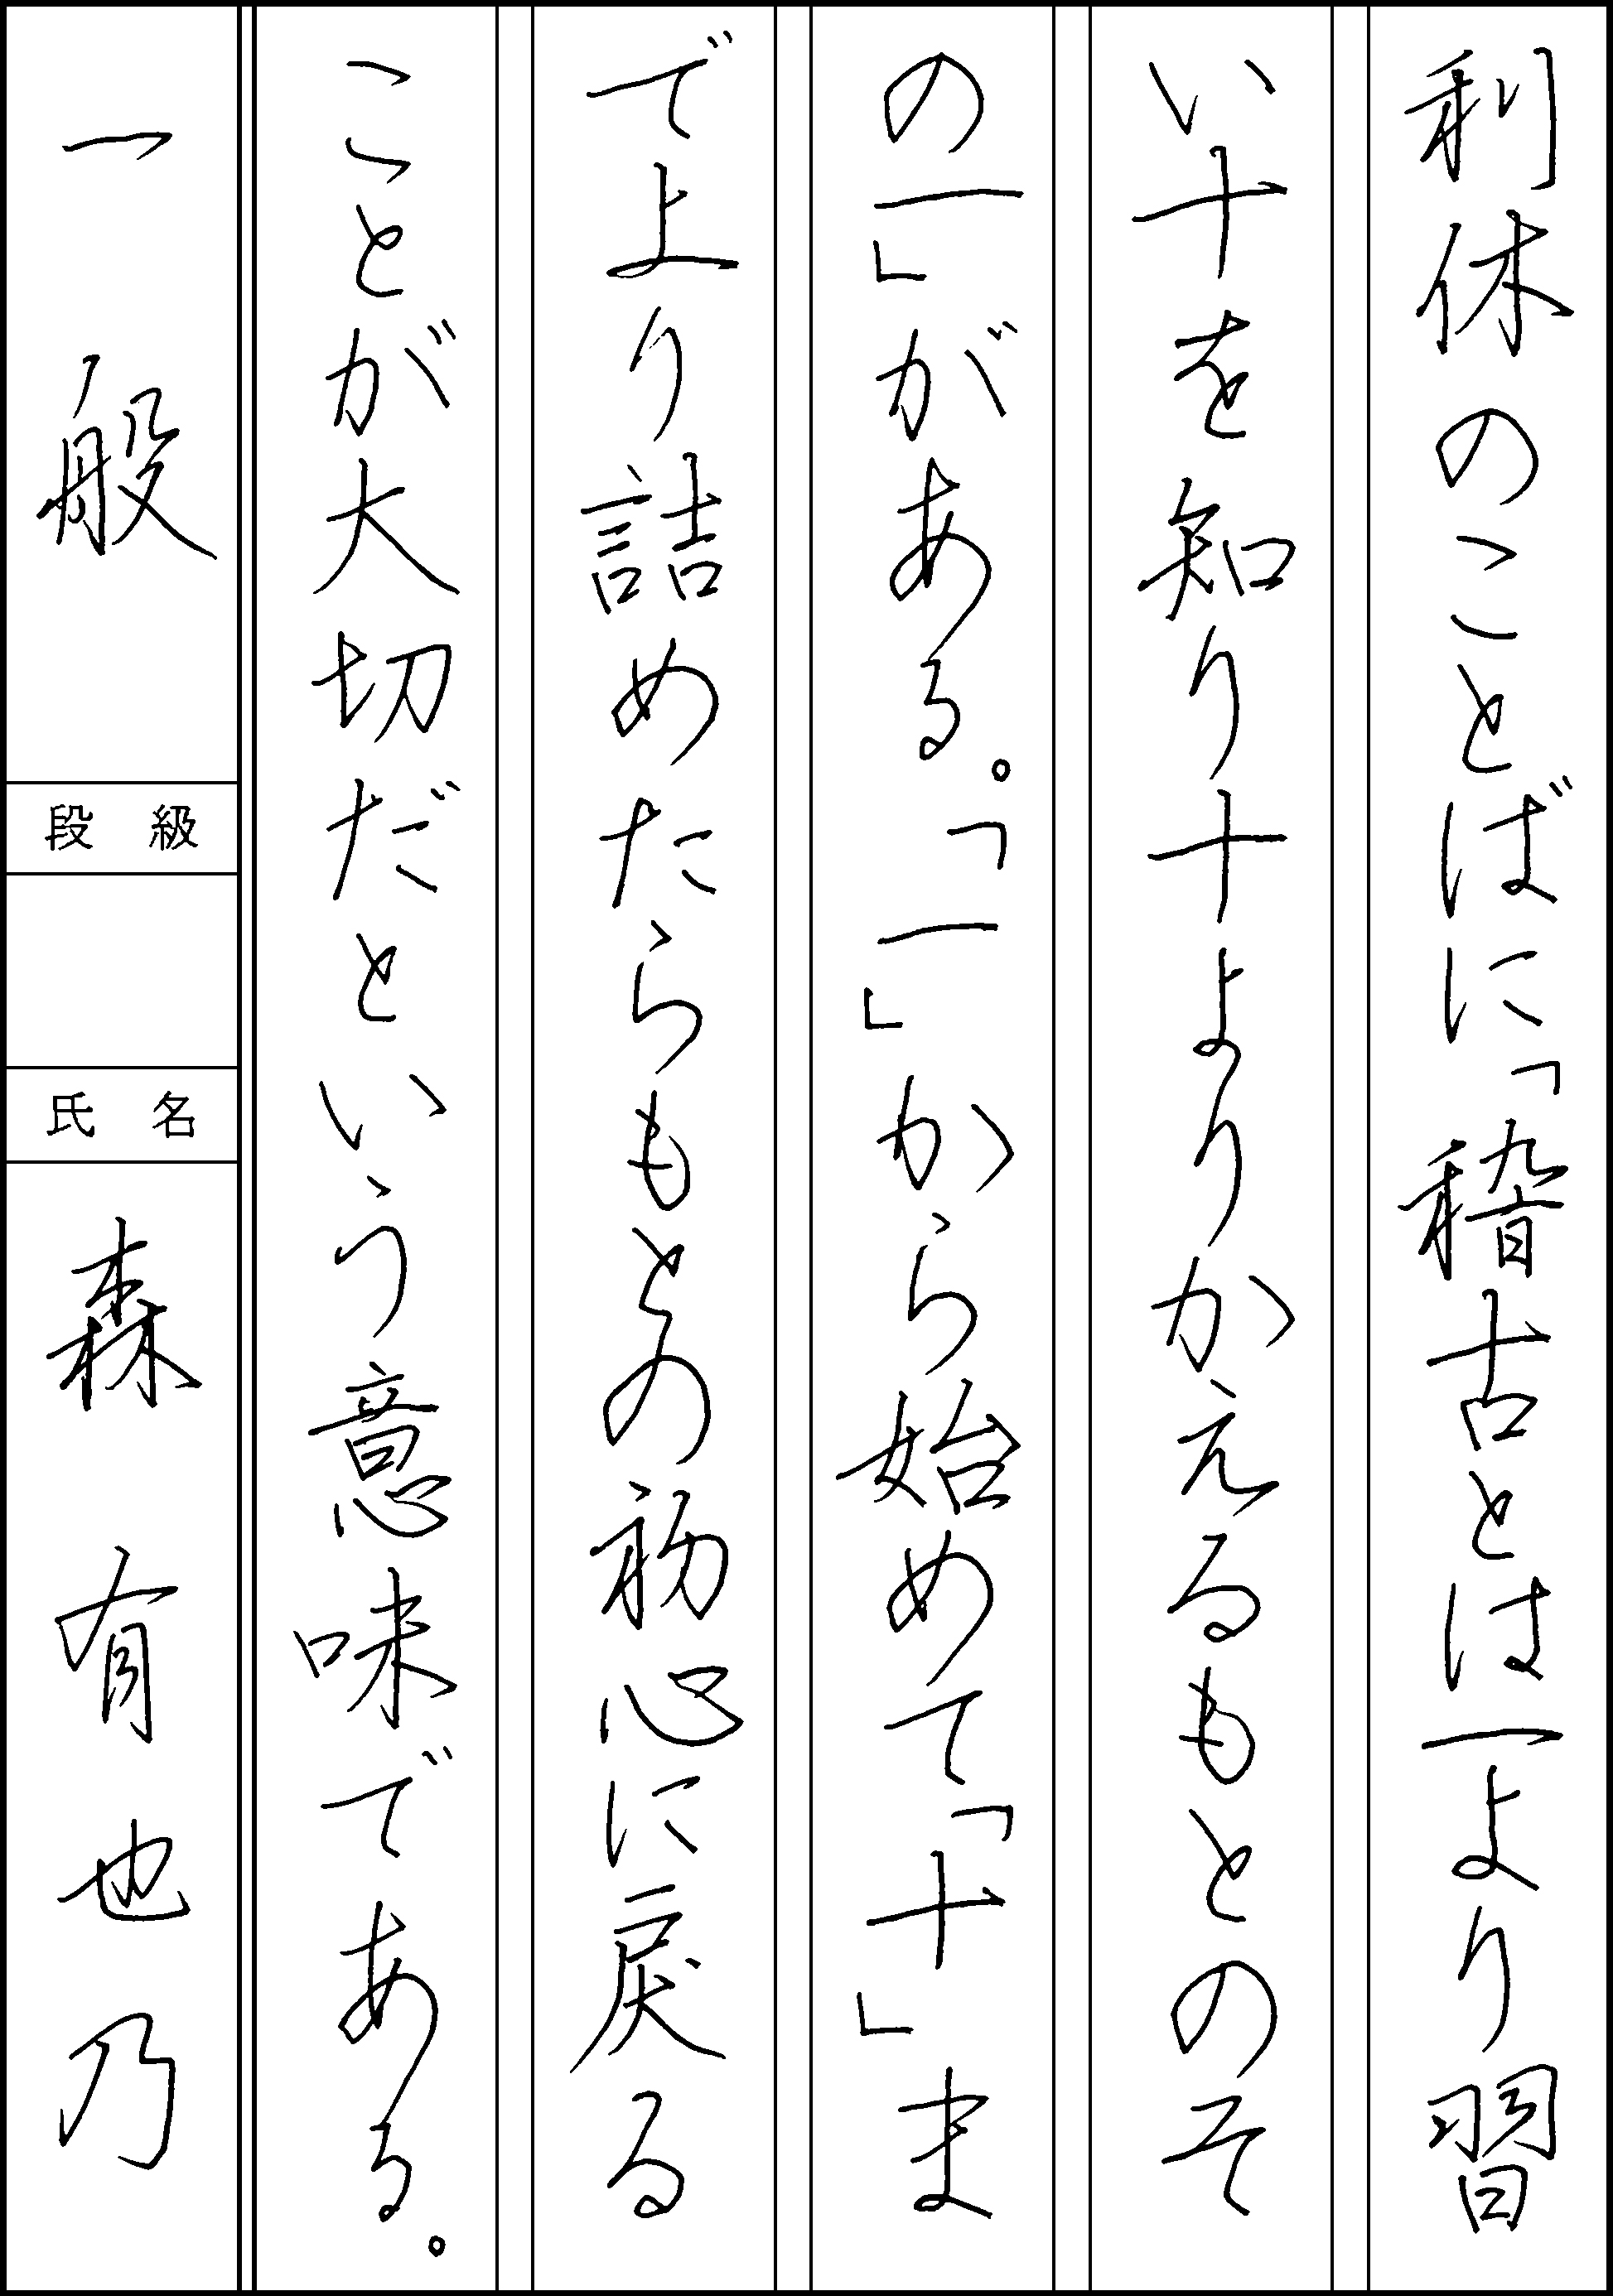 利休のことばに「稽古とは一より習
い十を知り十よりかえるもとのそ
の一」がある。「一」から始めて「十」ま
で上り詰めたらもとの初心に戻る
ことが大切だという意味である。
一般
段級
氏名
森有也乃